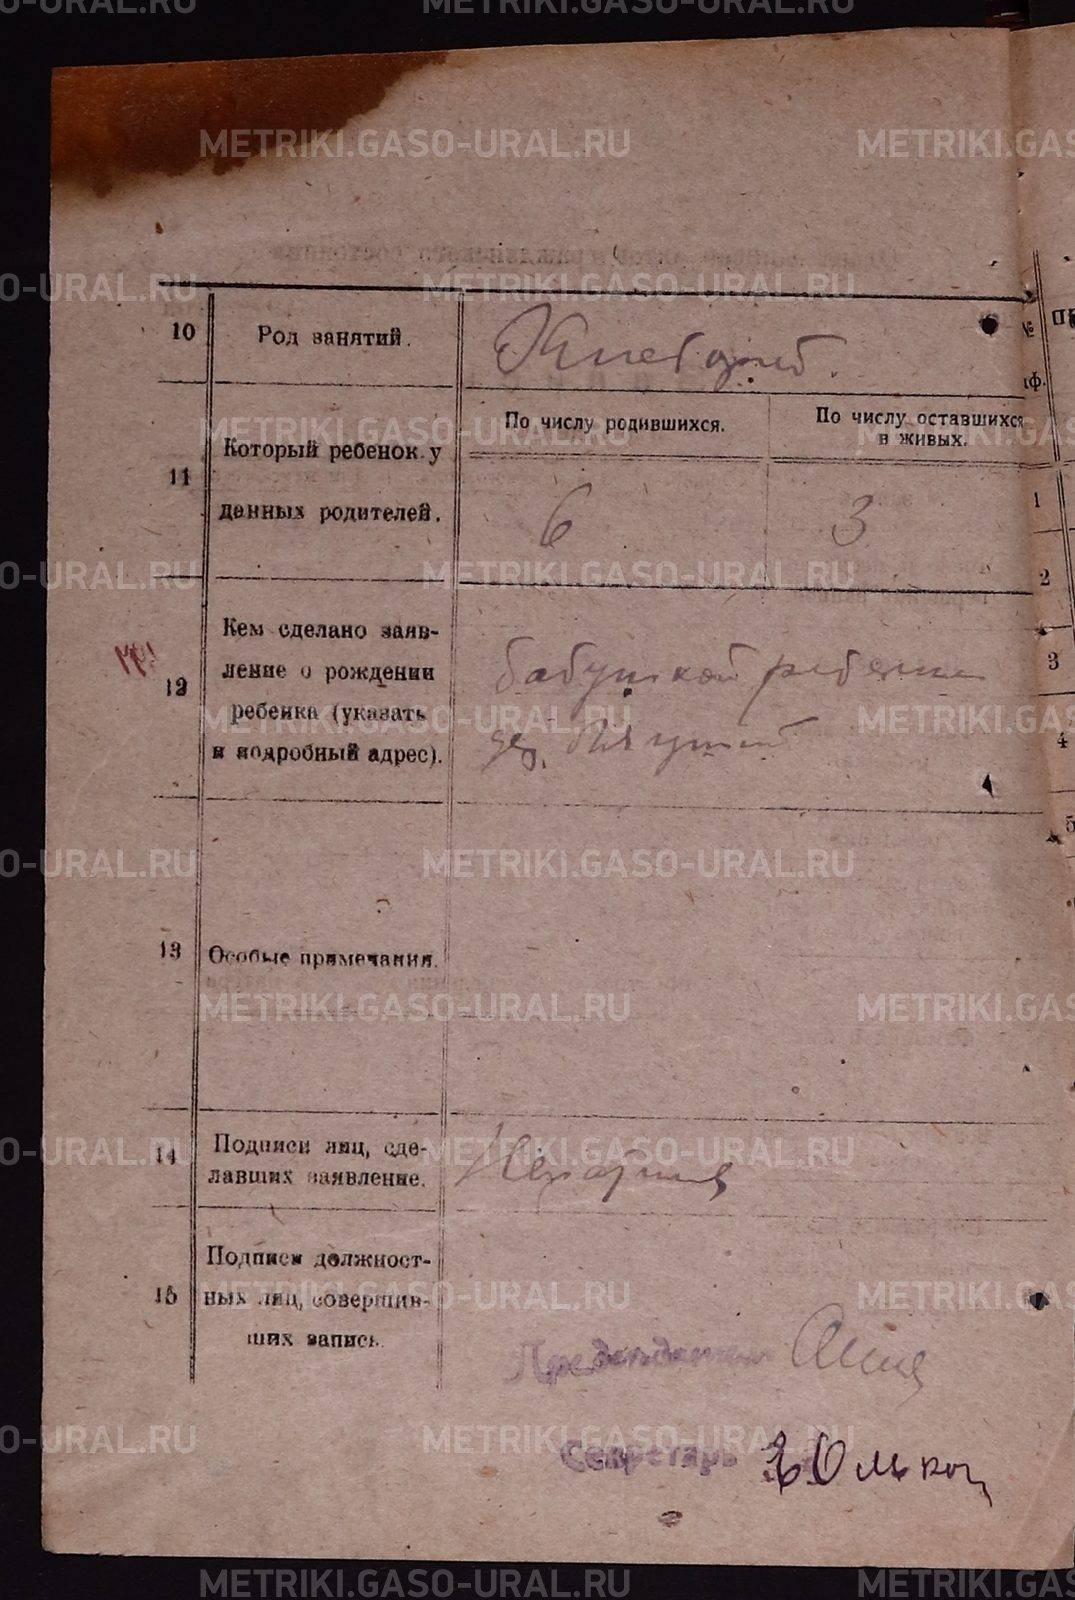 METRIKI.GASO-URAL.RU
10 Род занятий.
11 Который ребенок у
данных родителей.
По числу родившихся.
По числу оставшихся
в живых.
6 3
12 Кем сделано заяв-
ление о рождении
ребенка (указать
и подробный адрес).
бабушкой ребенка
дер.
13 Особые примечания.
14 Подписи лиц, сде-
лавших заявление.
15 Подписи должност-
ных лиц, совершив-
ших запись.
Председатель
Секретарь
№
1
2
3
4
5